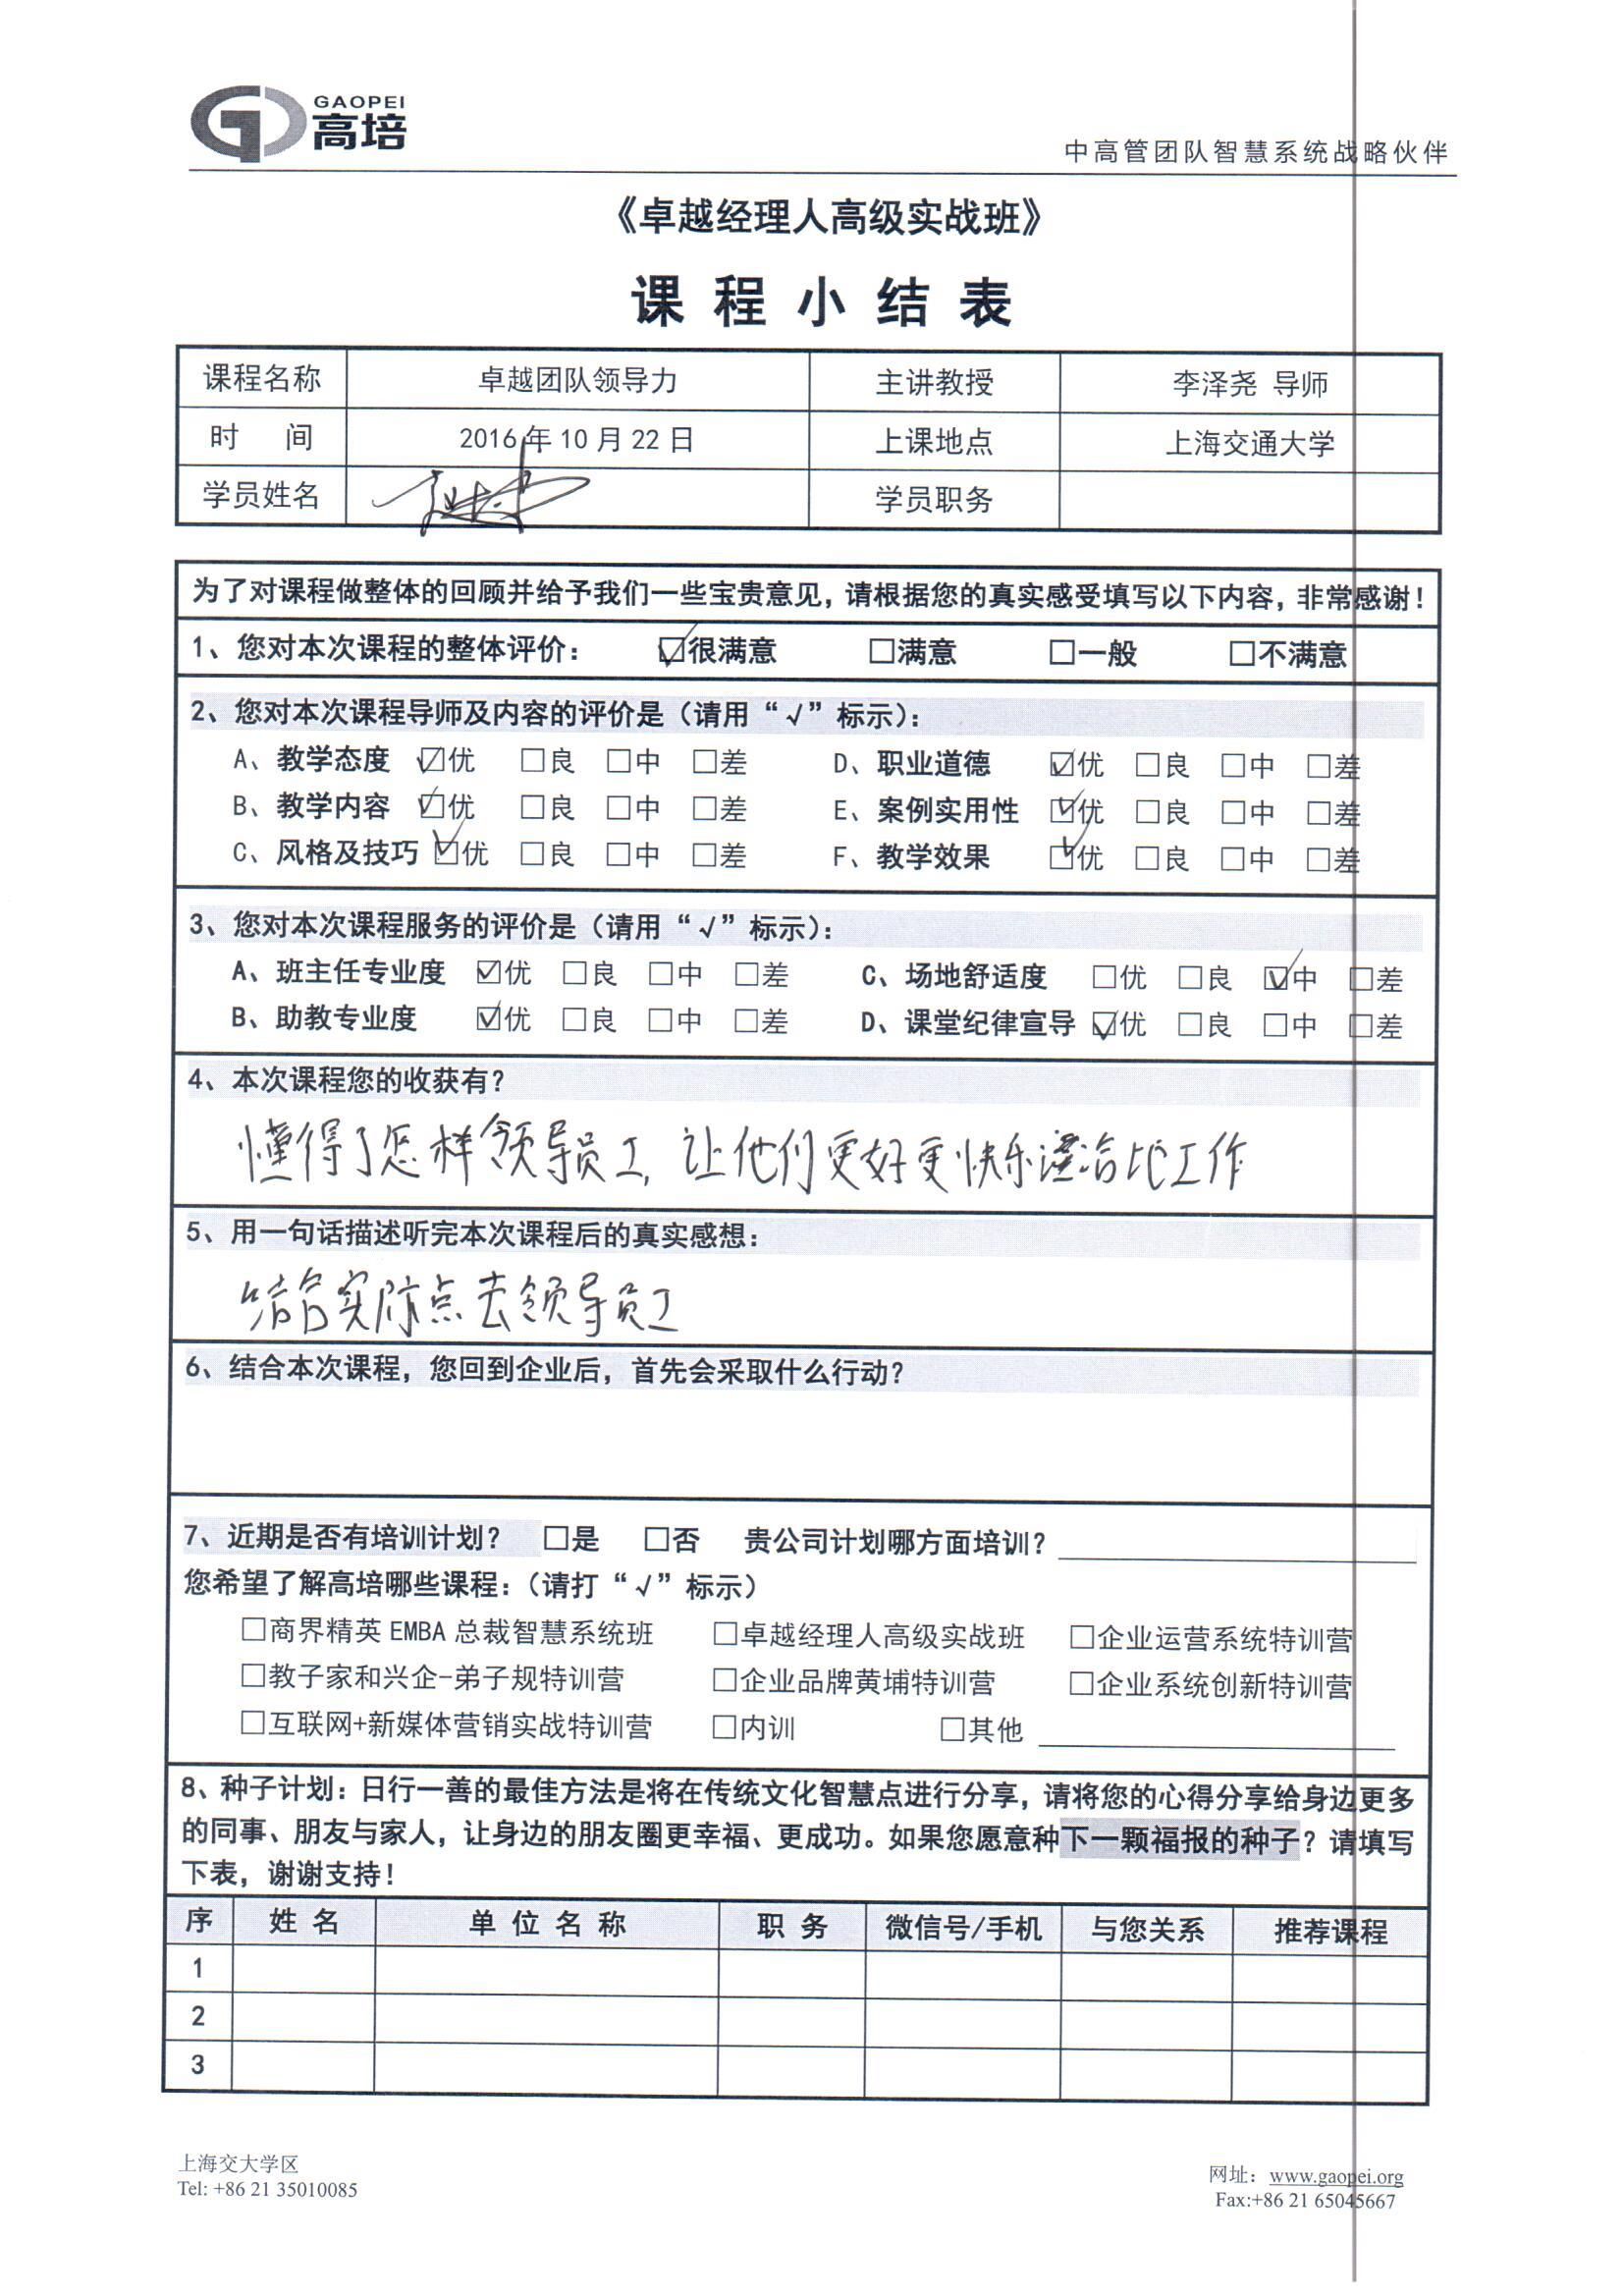 GAOPEI
高培
中高管团队智慧系统战略伙伴
《卓越经理人高级实战班》
课程小结表
课程名称 卓越团队领导力 主讲教授 李泽尧 导师
时 间 2016年10月22日 上课地点 上海交通大学
学员姓名 学员职务
为了对课程做整体的回顾并给予我们一些宝贵意见，请根据您的真实感受填写以下内容，非常感谢！
1、您对本次课程的整体评价： ☑很满意 □满意 □一般 □不满意
2、您对本次课程导师及内容的评价是（请用“√”标示）：
A、教学态度 ☑优 □良 □中 □差 D、职业道德 ☑优 □良 □中 □差
B、教学内容 ☑优 □良 □中 □差 E、案例实用性 ☑优 □良 □中 □差
C、风格及技巧 ☑优 □良 □中 □差 F、教学效果 ☑优 □良 □中 □差
3、您对本次课程服务的评价是（请用“√”标示）：
A、班主任专业度 ☑优 □良 □中 □差 C、场地舒适度 □优 □良 ☑中 □差
B、助教专业度 ☑优 □良 □中 □差 D、课堂纪律宣导 ☑优 □良 □中 □差
4、本次课程您的收获有？
懂得了怎样领导员工，让他们更好更快乐 工作
5、用一句话描述听完本次课程后的真实感想：
结合实际点去领导员工
6、结合本次课程，您回到企业后，首先会采取什么行动？
7、近期是否有培训计划？ □是 □否 贵公司计划哪方面培训？
您希望了解高培哪些课程：（请打“√”标示）
□商界精英 EMBA 总裁智慧系统班 □卓越经理人高级实战班 □企业运营系统特训营
□教子家和兴企-弟子规特训营 □企业品牌黄埔特训营 □企业系统创新特训营
□互联网+新媒体营销实战特训营 □内训 □其他
8、种子计划：日行一善的最佳方法是将在传统文化智慧点进行分享，请将您的心得分享给身边更多
的同事、朋友与家人，让身边的朋友圈更幸福、更成功。如果您愿意种下一颗福报的种子？请填写
下表，谢谢支持！
序 姓名 单位名称 职务 微信号/手机 与您关系 推荐课程
1
2
3
上海交大学区
Tel: +86 21 35010085
网址：www.gaopei.org
Fax:+86 21 65045667